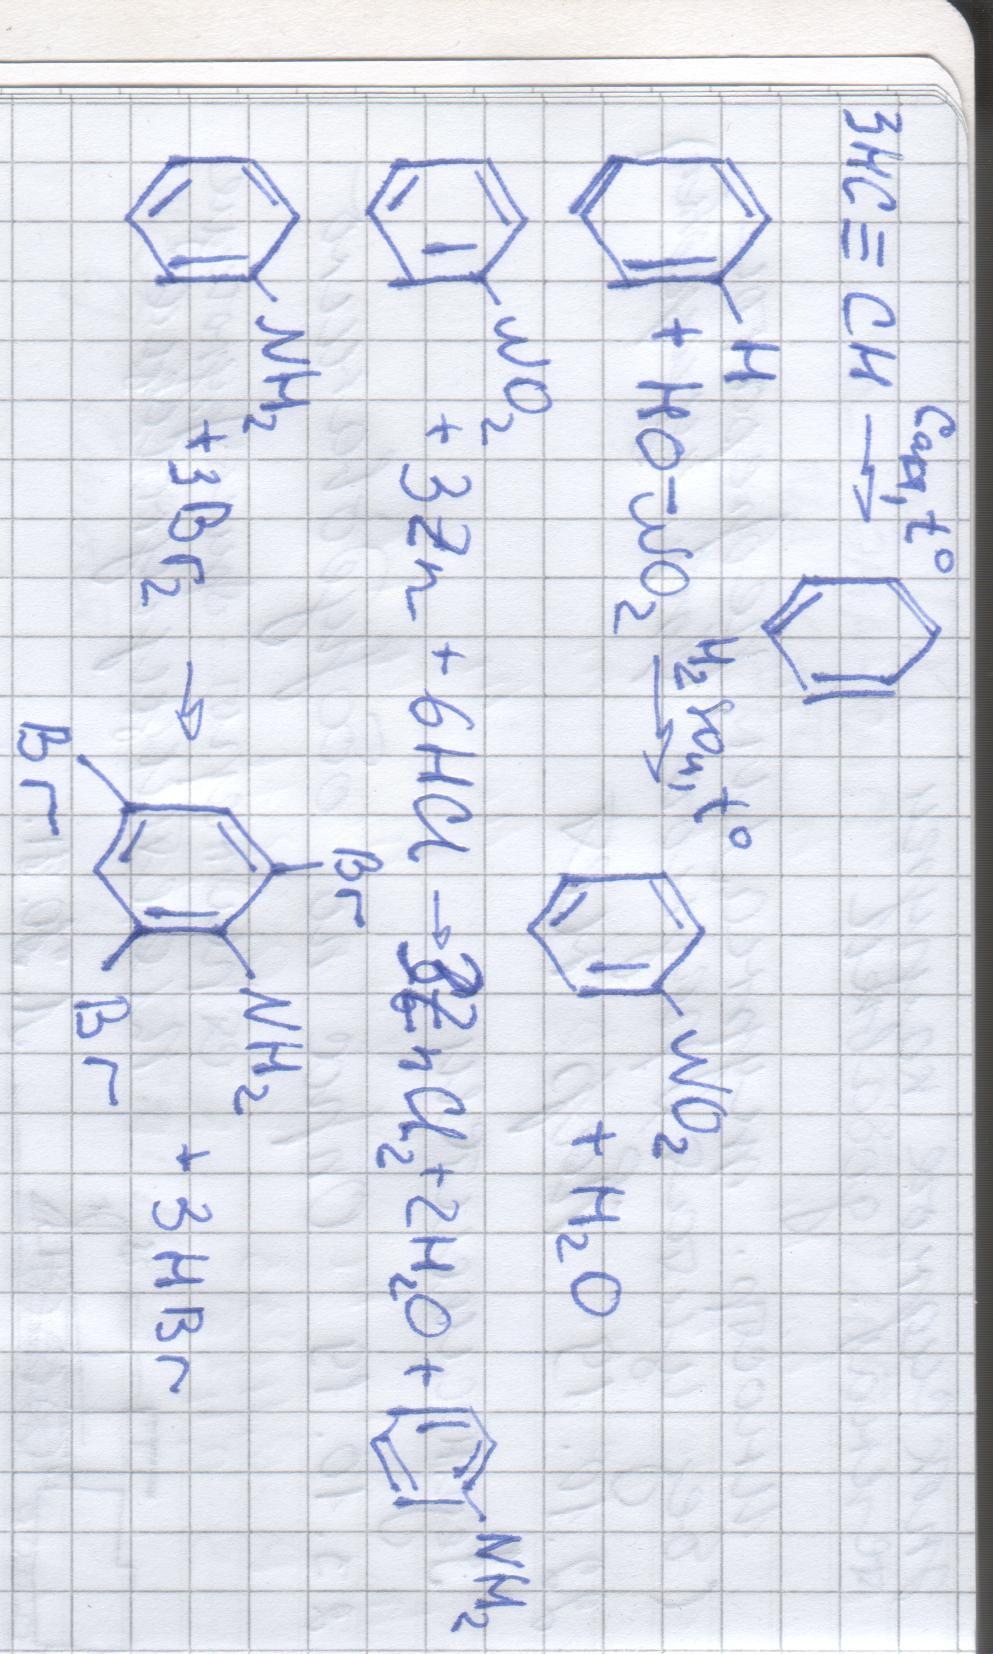 3HC≡CH → Cакт, t°
H + HO-NO2 → H2SO4, t° NO2 + H2O
NO2 + 3Zn + 6HCl → 3ZnCl2 + 2H2O + NH2
NH2 + 3Br2 → Br Br Br NH2 + 3HBr